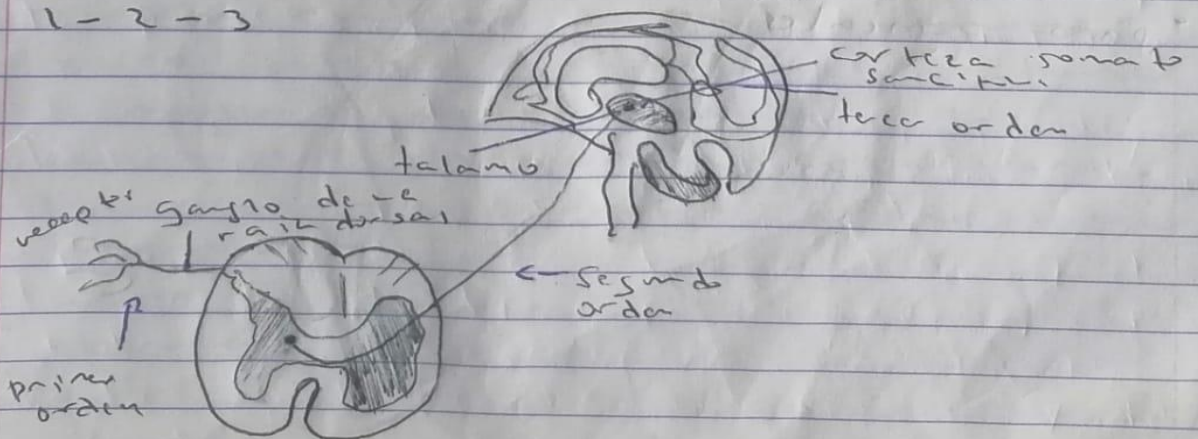 1 - 2 - 3
corteza somato
tercer orden
talamo
receptor
ganglio de la
raiz dorsal
← segundo
orden
primer
orden